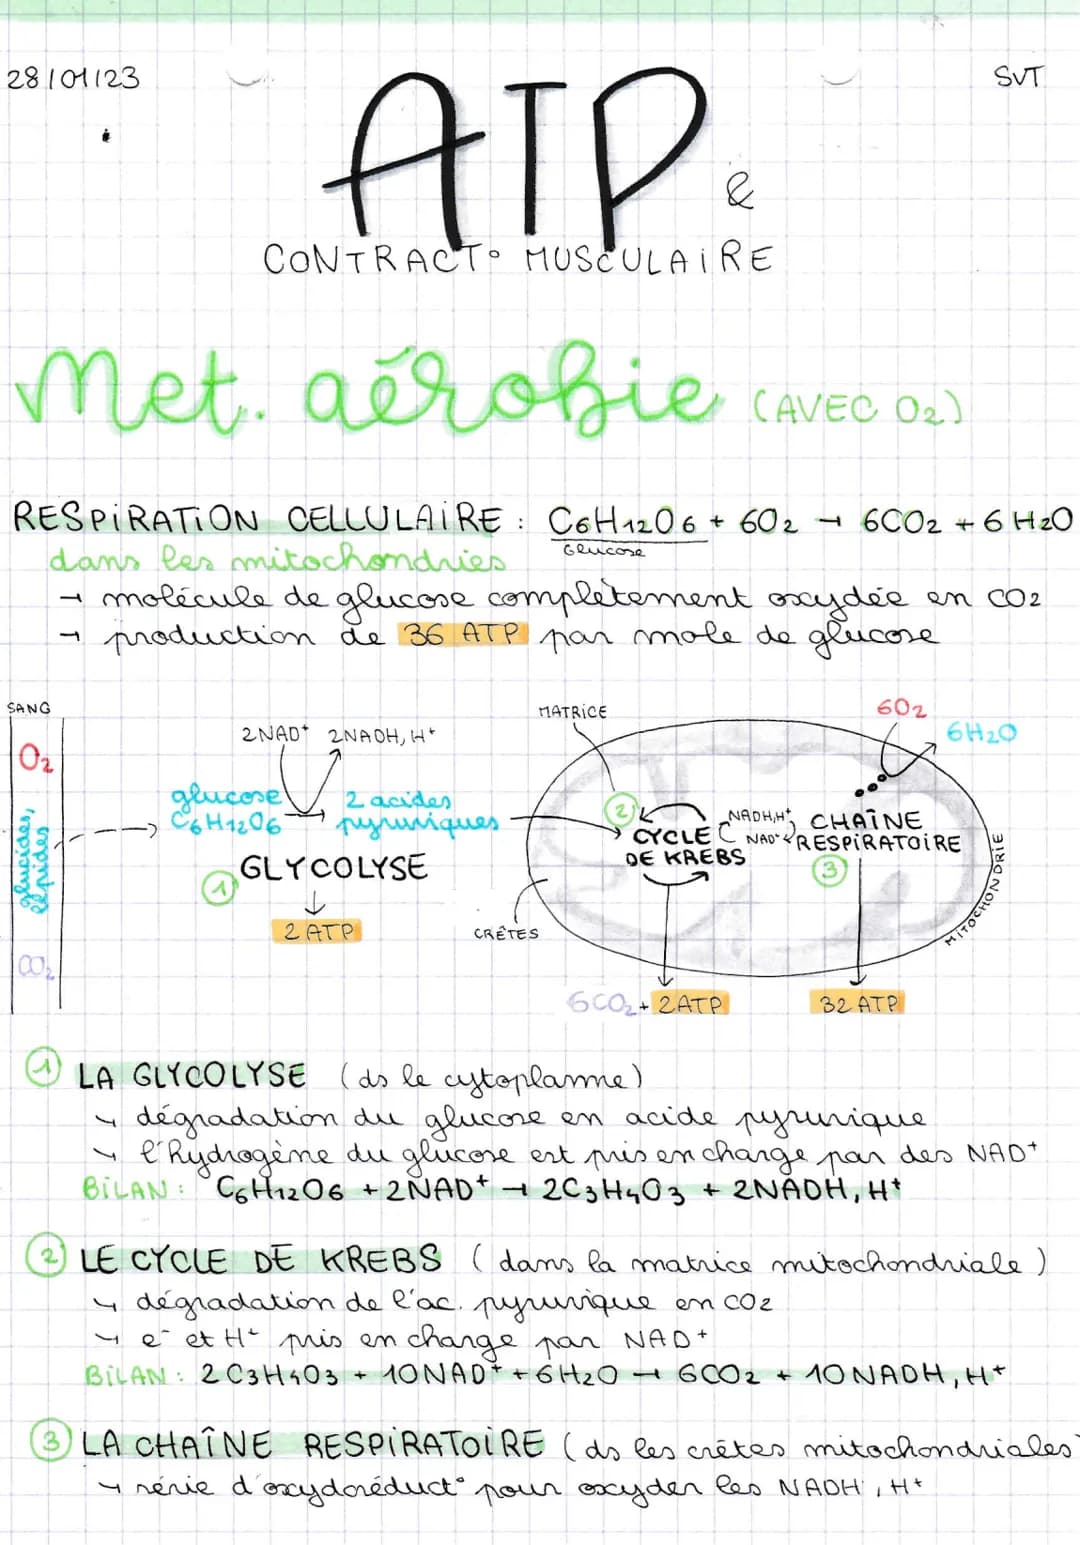 28/01/23
SVT
ATP &
CONTRACT° MUSCULAIRE
Met. aérobie (AVEC O2)
RESPIRATION CELLULAIRE : C6H12O6 + 6O2 → 6CO2 + 6H2O
Glucose
dans les mitochondries
→ molécule de glucose complètement oxydée en CO2
→ production de 36 ATP par mole de glucose
SANG
O2
glucides,
lipides
CO2
2NAD+ 2NADH, H+
glucose
C6H12O6
2 acides
pyruviques
1 GLYCOLYSE
2 ATP
MATRICE
CRÊTES
2
CYCLE
DE KREBS
NADH,H+
NAD+
6O2
6H2O
CHAÎNE
RESPIRATOIRE
3
MITOCHONDRIE
6CO2 + 2ATP
32 ATP
1 LA GLYCOLYSE (ds le cytoplasme)
↳ dégradation du glucose en acide pyruvique
↳ l'hydrogène du glucose est pris en charge par des NAD+
BILAN : C6H12O6 + 2NAD+ → 2C3H4O3 + 2NADH, H+
2 LE CYCLE DE KREBS (dans la matrice mitochondriale)
↳ dégradation de l'ac. pyruvique en CO2
↳ e- et H+ pris en charge par NAD+
BILAN : 2C3H4O3 + 10NAD+ + 6H2O → 6CO2 + 10NADH, H+
3 LA CHAÎNE RESPIRATOIRE (ds les crêtes mitochondriales
↳ série d'oxydoréduct° pour oxyder les NADH, H+